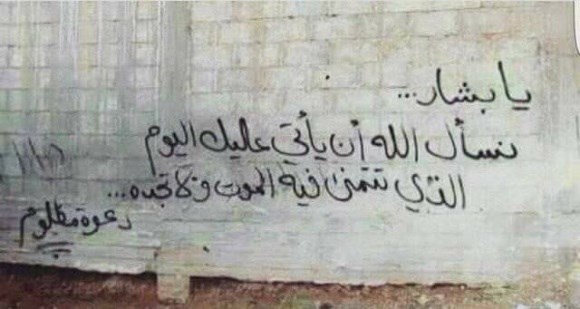 يا بشار...
نسأل الله أن يأتي عليك اليوم
الذي تتمنى فيه الموت ولا تجده...
دعوة مظلوم